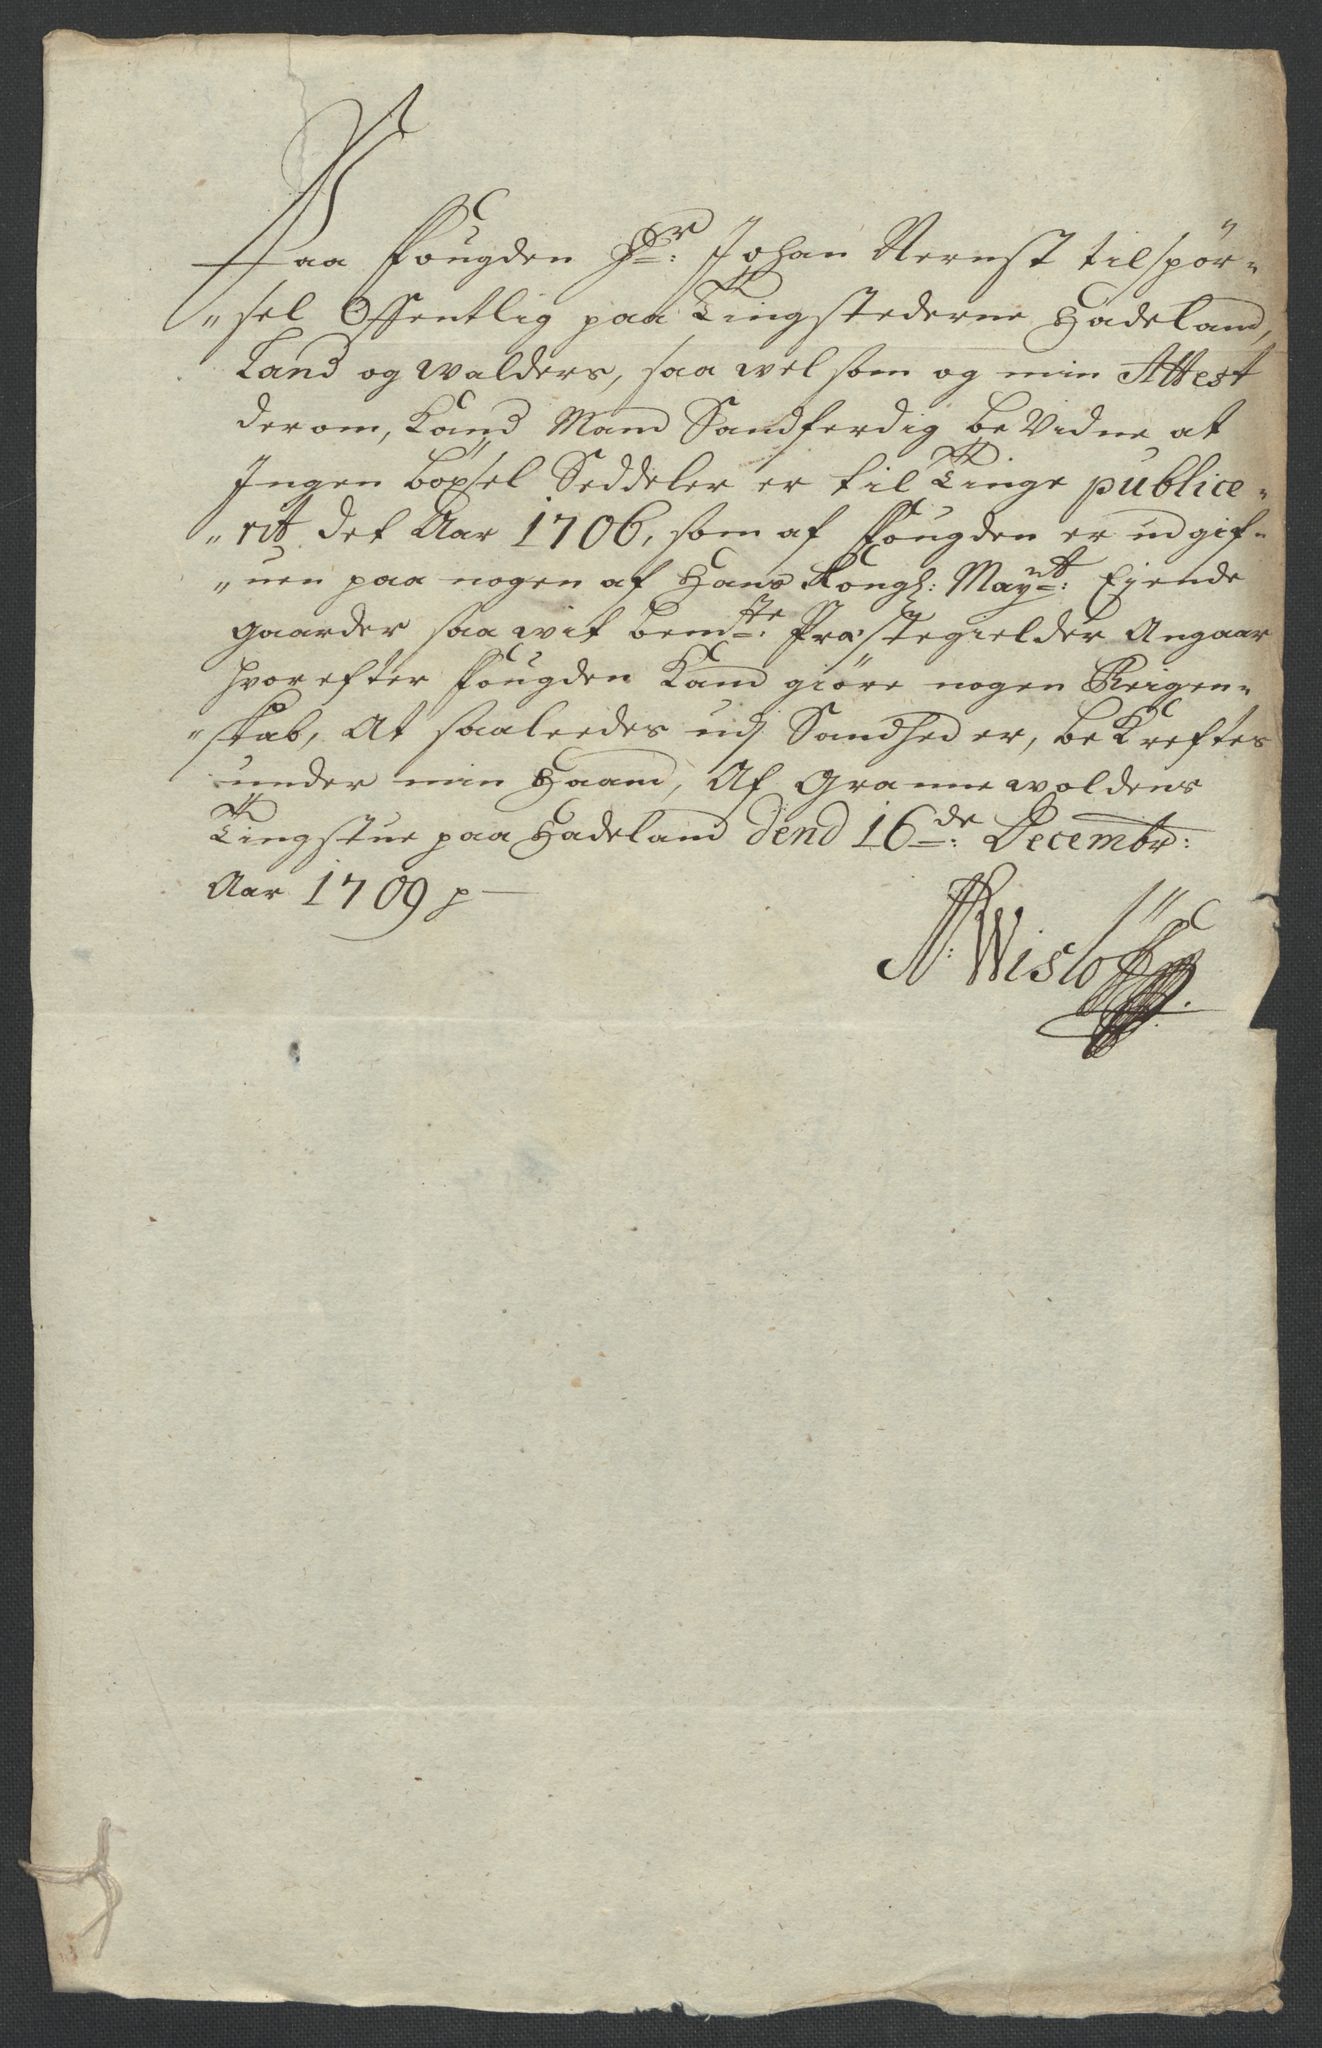 Paa Fougden Hr: Johan Nernst tilspör-
"sel Offentlig paa Tingstederne Hadeland,
Land og walders, saa wel som og min Attest
derom, Kand Mand Sandferdig beVidne at
Ingen böxsel Seddeler er til Tinge publice-
"rit det Aar 1706, som af Fougden er udgif-
"uen paa nogen af Hans Kongl: Mayt: Ejende
gaarder saa wit bemte: Præstegielder Angaar
hvorefter Fougden Kand giöre nogen Reigen-
"skab, At saaleedes udj Sandhed er, beKreftes
under min Haand, Af Grannewoldens
Tingstue paa Hadeland dend 16de: Decembr:
Aar 1709 p
N: Wislöff